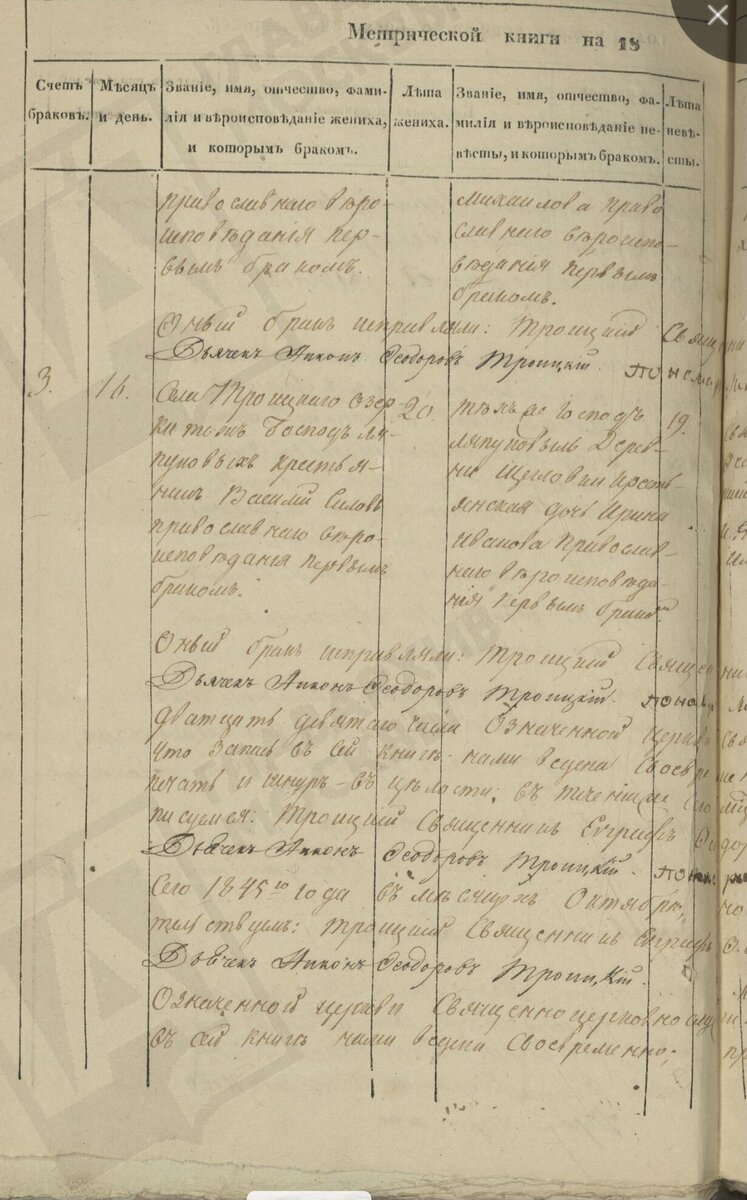 Метрической книги на 18
Счетъ браковъ.
Мѣсяцъ и день.
Званіе, имя, отчество, фамилія и вѣроисповѣданіе жениха, и которымъ бракомъ.
Лѣта жениха.
Званіе, имя, отчество, фамилія и вѣроисповѣданіе невѣсты, и которымъ бракомъ.
Лѣта невѣсты.
православнаго вѣро-
исповѣданія пер-
вымъ бракомъ.
Михаилова право
славнаго вѣроиспо-
вѣданія первымъ
бракомъ.
Оный бракъ исправляли: Троицкій Свящ
Дьячек Никонъ Ѳеодоровъ Троицкій. поном
3.
16.
Села Троицкаго Озер-
ки тожъ Господъ Ля-
пуновыхъ крестья-
нинъ Василій Силовъ
православнаго вѣро-
исповѣданія первымъ
бракомъ.
20.
тѣхъ же Господъ
Ляпуновыхъ Дерев-
ни Щегловки кресть-
янская дочь Ирина
Иванова Православ-
наго вѣроисповѣда-
нія первымъ брако
19.
Оный бракъ исправляли: Троицкій Священ
Дьячек Никонъ Ѳеодоровъ Троицкій. понам
дватцать девятаго числа Означенной церкви
что запись въ сей книгѣ нами ведена своевре
печать и шнуръ въ цѣлости; въ теченіи
писуемся: Троицкій Священникъ
Дьячек Никонъ Ѳеодоровъ Троицкій. поном
Сего 1845го года въ мѣсяцѣ Октябрѣ,
тельствуемъ: Троицкій Священникъ
Дьячек Никонъ Ѳеодоровъ Троицкій.
Означенной церкви Священноцерковнослу
въ сей книгѣ нами ведена своевременно;